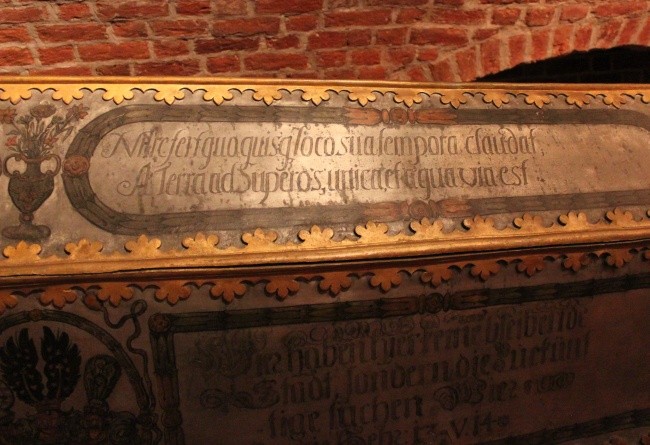 Nil refert quo quisq; loco sua tempora claudat,
A Terra ad Superos, unica, et aequa via est.
Wir haben hier keine bleibende
Stadt, sondern die Zukünf
tige suchen
V. 14